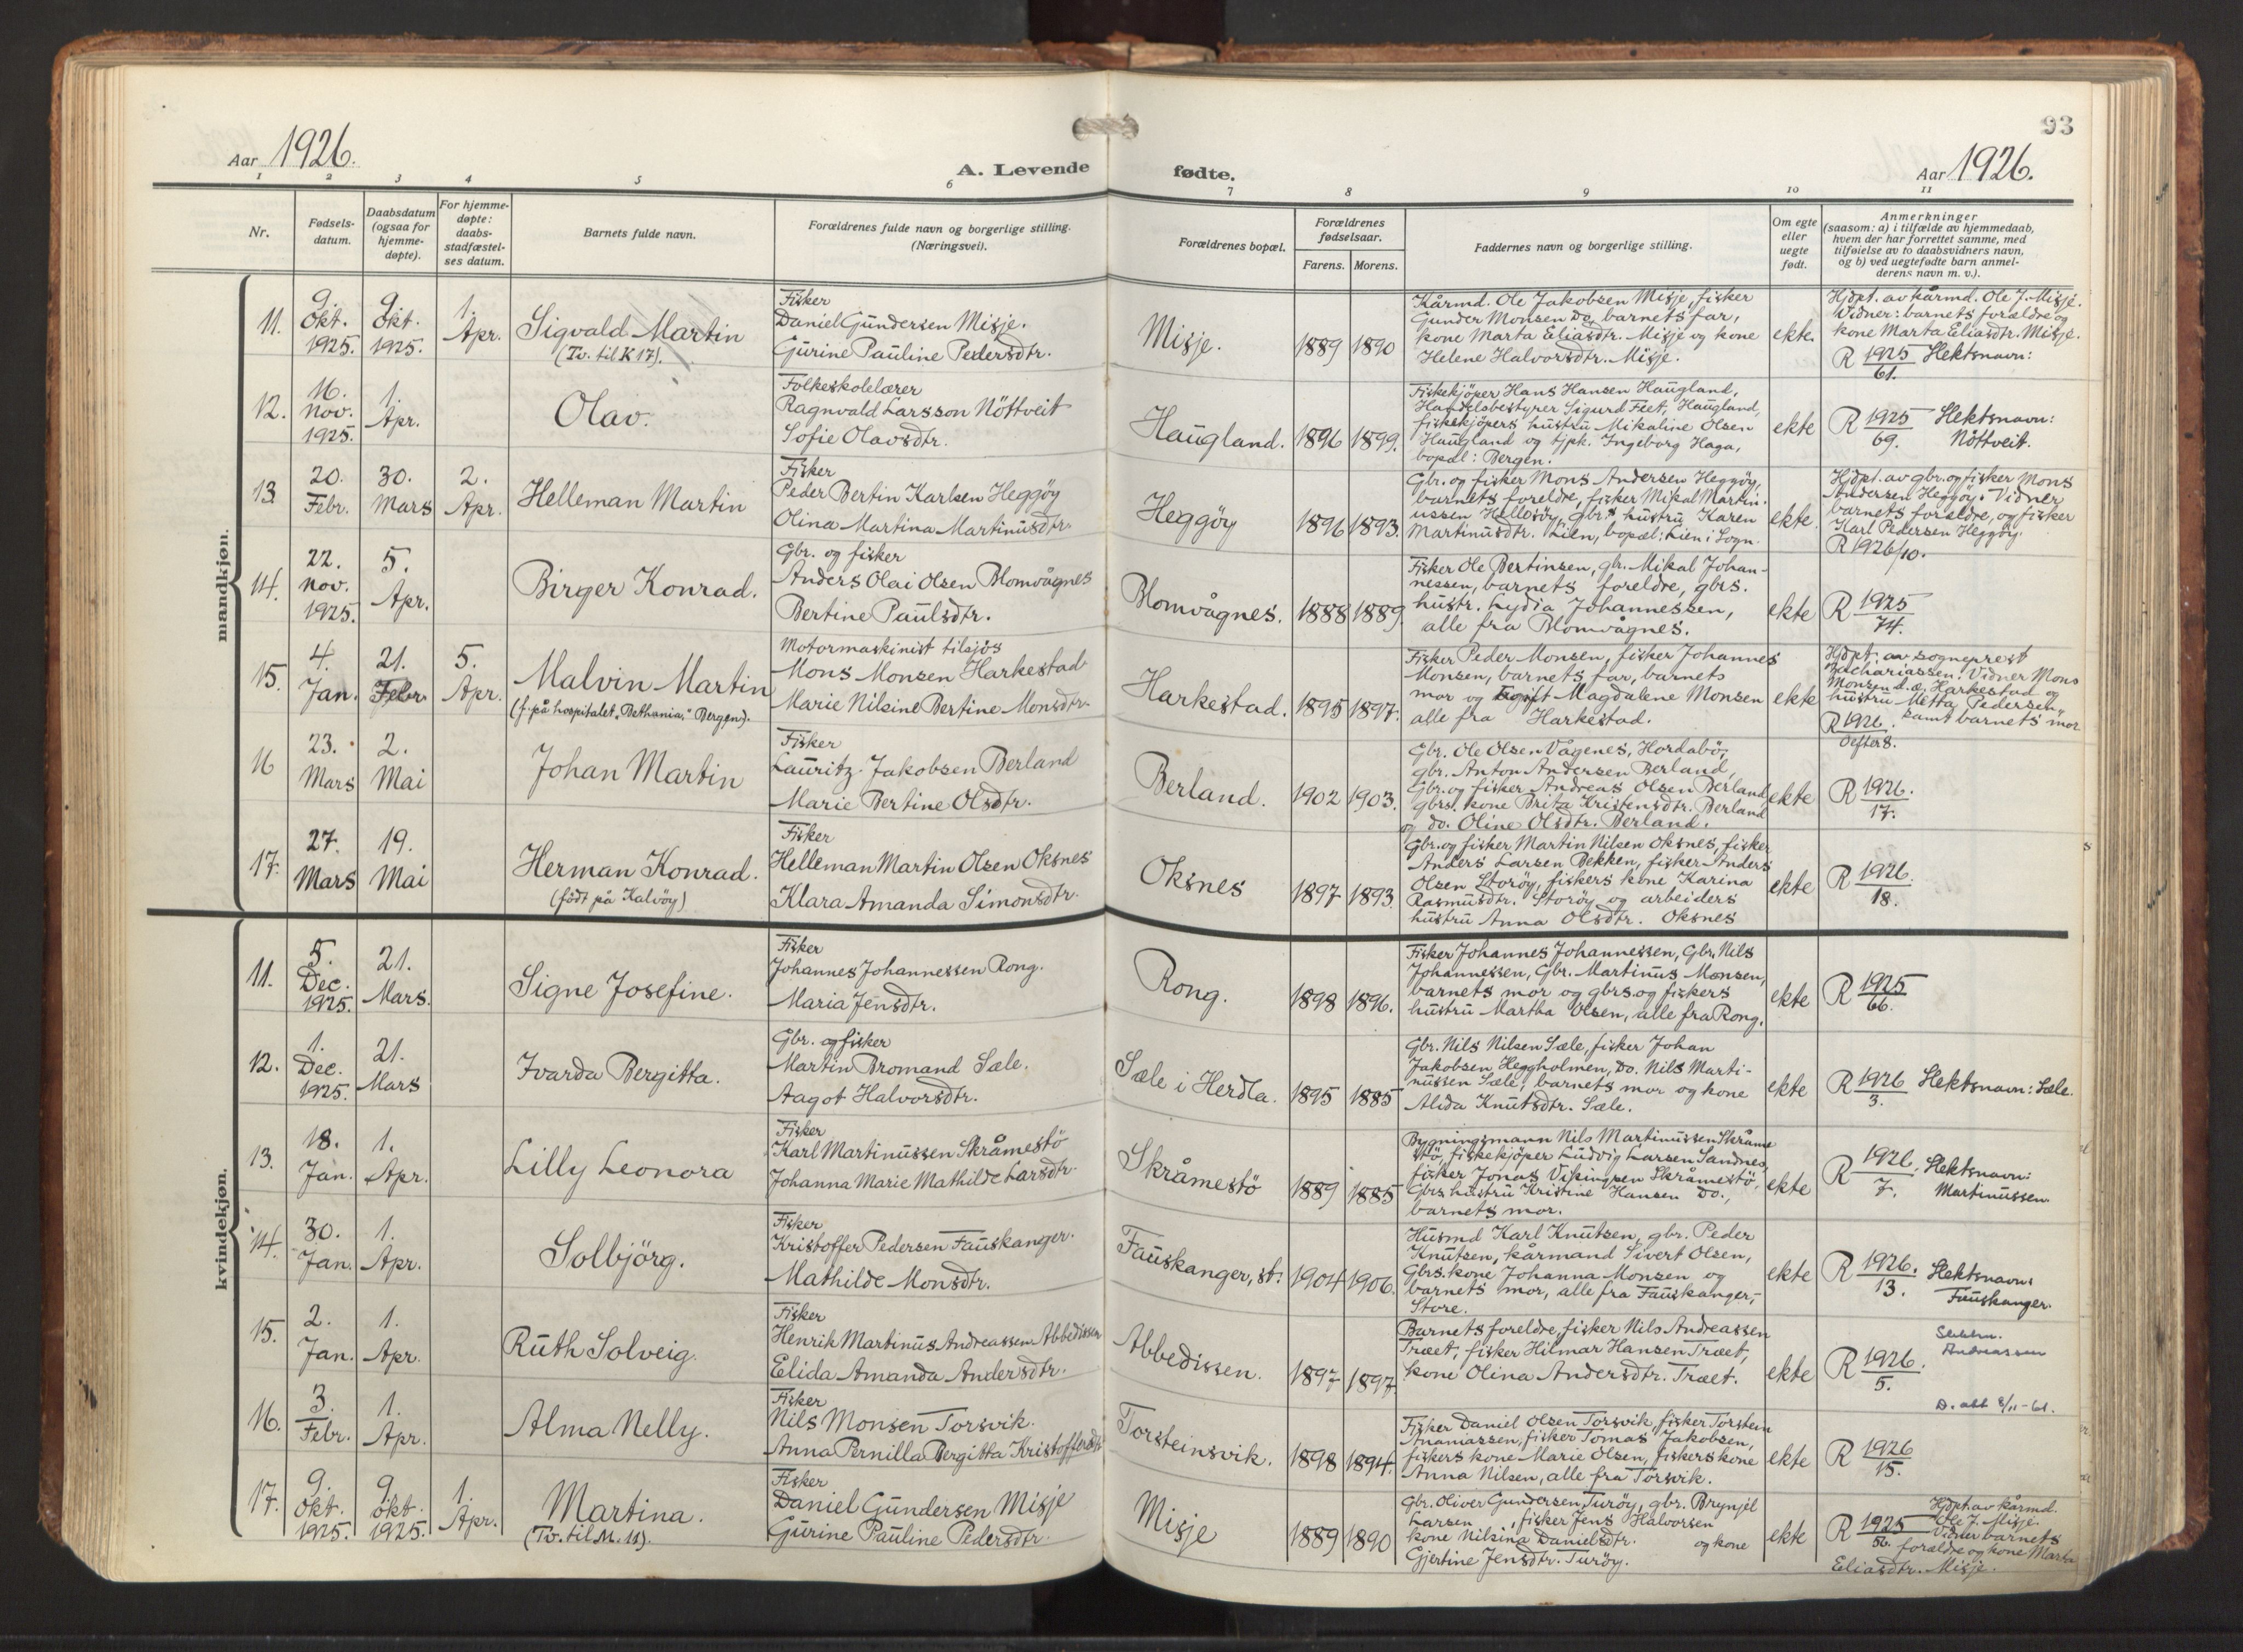 93
Aar 1926.
A. Levende fødte.
Aar 1926.
1 2 3 4 5 6 7 8 9 10 11
Nr.
Fødsels-
datum.
Daabsdatum
(ogsaa for
hjemme-
døpte).
For hjemme-
døpte:
daabs-
stadfæstel-
ses datum.
Barnets fulde navn.
Forældrenes fulde navn og borgerlige stilling.
(Næringsvei).
Forældrenes bopæl.
Forældrenes
fødselsaar.
Farens. Morens.
Faddernes navn og borgerlige stilling.
Om egte
eller
uegte
født.
Anmerkninger
(saasom: a) i tilfælde av hjemmedaab,
hvem der har forrettet samme, med
tilføielse av to daabsvidners navn,
og b) ved uegtefødte barn anmel-
derens navn m. v.).
mandkjøn.
11.
9.
Okt.
1925.
9.
Okt.
1925.
1.
Apr.
Sigvald Martin
(Tv. til K 17).
Fisker
Daniel Gundersen Misje.
Gurine Pauline Pedersdtr.
Misje.
1889 1890
Kårmd. Ole Jakobsen Misje, fisker
Gunder Monsen Do, barnets far,
kone Marta Eliasdtr. Misje og kone
Helene Halvorsdtr. Misje.
ekte.
Hjdpt. av kårmd. Ole J. Misje.
Vidner: barnets forældre og
kone Marta Eliasdtr. Misje.
R 1925 Slektsnavn:
61.
12.
16.
Nov.
1925.
1.
Apr.
Olav.
Folkeskolelærer
Ragnvald Larsson Nöttveit
Sofie Olavsdtr.
Haugland.
1896 1899.
Fiskekjöper Hans Hansen Haugland,
Handelsbestyrer Sigurd Feet, Haugland,
fiskekjöpers hustru Mikaline Olsen
Haugland og tjpk. Ingeborg Haga,
bopæl: Bergen.
ekte
R 1925 Slektsnavn:
69. Nöttveit.
13.
20.
Febr.
30.
Mars
2.
Apr.
Helleman Martin
Fisker
Peder Bertin Karlsen Heggöy
Olina Martina Martinusdtr.
Heggöy
1896 1893.
Gbr. og fisker Mons Andersen Heggöy,
barnets foreldre, fisker Mikal Martin-
ussen Hellesöy, gbrs hustru Karen
Martinusdtr. Lien, bopæl: Lien i Sogn.
ekte.
Hjdpt. av gbr. og fisker Mons
Andersen Heggöy. Vidner
barnets forældre, og fisker
Karl Pedersen Heggöy.
R 1926/10.
14.
22.
Nov.
1925.
5.
Apr.
Birger Konrad.
Gbr. og fisker
Anders Olai Olsen Blomvågnes
Bertine Paulsdtr.
Blomvågnes.
1888 1889.
Fisker Ole Bertinsen, gbr. Mikal Johan-
nessen, barnets foreldre, gbrs.
hustr. Lydia Johannessen,
alle fra Blomvågnes.
ekte
R 1925
74.
15.
4.
Jan.
21.
Febr.
5.
Apr.
Malvin Martin
(f. på hospitalet „Bethania," Bergen).
Motormaskinist tilsjös
Mons Monsen Harkestad
Marie Nilsine Bertine Monsdtr.
Harkestad.
1895 1897.
Fisker Peder Monsen, fisker Johannes
Monsen, barnets far, barnets
mor og Magdalene Monsen
alle fra Harkestad.
ekte
Hjdpt. av sogneprest
Zachariassen. Vidner Mons
Monsen d.æ. Harkestad og
hustru Metta Pedersen,
samt barnets mor
R 1926.
Oefter 8.
16
23.
Mars
2.
Mai
Johan Martin
Fisker
Lauritz Jakobsen Berland
Marie Bertine Olsdtr.
Berland.
1902 1903.
Gbr. Ole Olsen Vågenes, Hordabö,
gbr. Anton Andersen Berland,
Gbr. og fisker Andreas Olsen Berland,
gbrs. kone Brita Kristensdtr. Berland
og do. Oline Olsdtr. Berland.
ekte
R 1926.
17.
17.
27.
Mars
19.
Mai
Herman Konrad.
(födt på Kalvöy)
Fisker
Helleman Martin Olsen Oksnes
Klara Amanda Simonsdtr.
Oksnes
1897 1893.
Gbr. og fisker Martin Nilsen Oksnes, fisker
Anders Larsen Bekken, fisker Anders
Olsen Storöy, fiskers kone Karina
Rasmusdtr. Storöy og arbeiders
hustru Anna Olsdtr. Oksnes
ekte
R 1926.
18.
kvindekjøn.
11.
5.
Dec.
1925.
21.
Mars.
Signe Josefine.
Fisker
Johannes Johannessen Rong.
Maria Jensdtr.
Rong.
1898 1896.
Fisker Johannes Johannessen, Gbr. Nils
Johannessen, Gbr. Martinus Monsen,
barnets mor og gbrs. og fiskers
hustru Martha Olsen, alle fra Rong.
ekte
R 1925
66.
12.
1.
Dec.
1925.
21.
Mars
Ivarda Bergitta.
Gbr. og fisker
Martin Bromand Sæle.
Aagot Halvorsdtr.
Sæle i Herdla.
1895 1885
Gbr. Nils Nilsen Sæle, fisker Johan
Jakobsen Heggholmen, Do. Nils Marti-
nussen Sæle, barnets mor og kone
Alida Knutsdtr. Sæle.
ekte
R 1926 Slektsnavn: Sæle.
3.
13.
18.
Jan.
1.
Apr.
Lilly Leonora
Fisker
Karl Martinussen Skråmestö
Johanna Marie Mathilde Larsdtr.
Skråmestö
1889 1885
Bygningsmann Nils Martinussen Skråme
stö, fiskekjöper Ludvig Larsen Sandnes,
fisker Jonas Vikingsen Skråmestö,
Gbrs. hustru Kristine Hansen Do.,
barnets mor.
ekte
R 1926. Slektsnavn:
7. Martinussen.
14.
30.
Jan.
1.
Apr.
Solbjörg.
Fisker
Kristoffer Pedersen Fauskanger.
Mathilde Monsdtr.
Fauskanger, st.
1904 1906.
Husmd Karl Knutsen, gbr. Peder
Knutsen, kårmand Sivert Olsen,
Gbrs. kone Johanna Monsen og
barnets mor, alle fra Fauskanger,-
Store.
ekte
R 1926. Slektsnavn:
13. Fauskanger.
15.
2.
Jan.
1.
Apr.
Ruth Solveig.
Fisker
Henrik Martinus Andreassen Abbedissen
Elida Amanda Andersdtr.
Abbedissen.
1897 1897
Barnets foreldre, fisker Nils Andreassen
Træet, fisker Hilmar Hansen Træet,
kone Olina Andersdtr. Træet.
ekte
R 1926.
5.
Andreassen
16.
3.
Febr.
1.
Apr.
Alma Nelly.
Fisker
Nils Monsen Torsvik.
Anna Pernilla Bergitta Kristoffersdtr
Torsteinsvik.
1898 1894.
Fisker Daniel Olsen Torsvik, fisker Torstein
Ananiassen, fisker Tomas Jakobsen,
fiskers kone Marie Olsen, fiskers kone
Anna Nilsen, alle fra Torsvik.
ekte
D. att 8/11-61.
R 1926
15.
17.
9.
Okt.
1925.
9.
okt.
1925.
1.
Apr.
Martina.
(Tv. til M. 11).
Fisker
Daniel Gundersen Misje
Gurine Pauline Pedersdtr.
Misje
1889 1890
Gbr. Oliver Gundersen Turöy, gbr. Brynjel
Larsen , fisker Jens Halvorsen
kone Nilsina Danielsdtr. og kone
Gjertine Jensdtr. Turöy.
ekte
R 1925
56.
Hjdpt. av kårmd.
Ole J. Misje.
Vidner barnets
forældre og kone Marta
Eliasdtr. Misje.